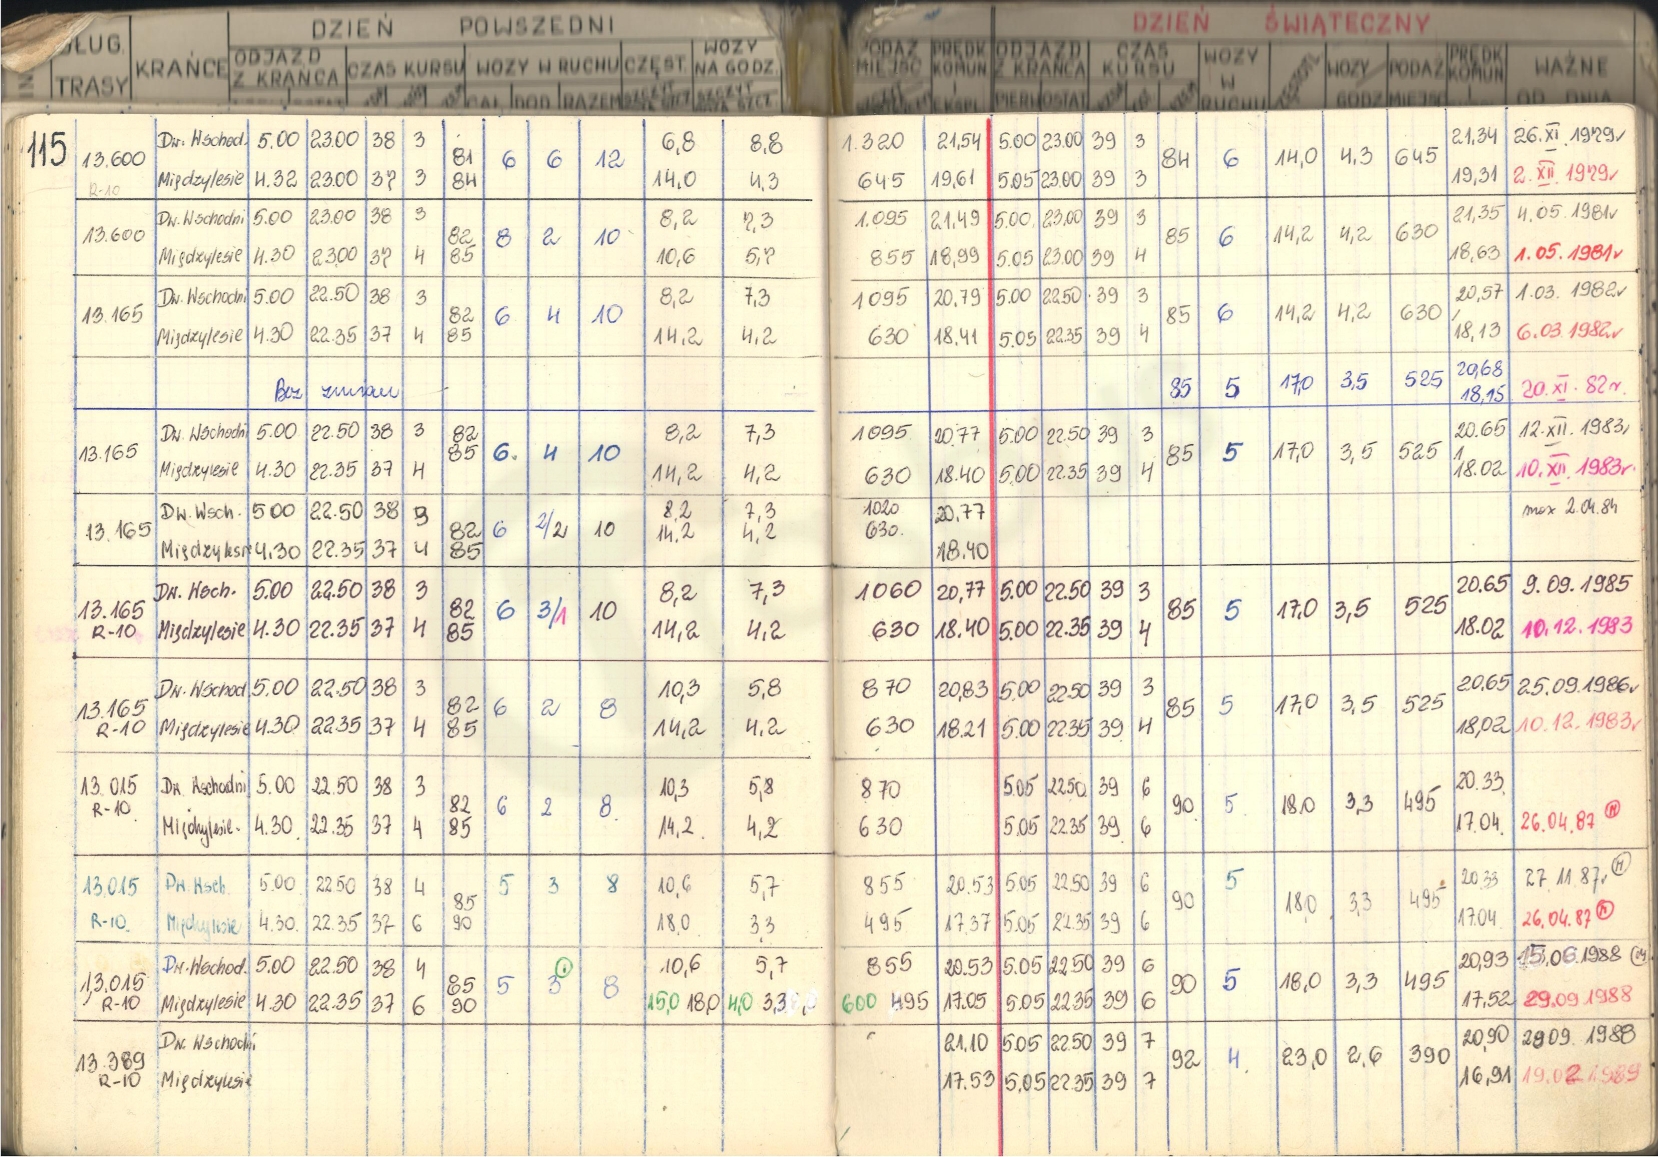 DZIEŃ POWSZEDNI DZIEŃ ŚWIĄTECZNY
DŁUG. TRASY KRAŃCE ODJAZD Z KRAŃCA CZAS KURSU WOZY W RUCHU CZĘST. WOZY NA GODZ. PODAŻ MIEJSC PRĘDK KOMUN I EKSPL ODJAZD Z KRAŃCA CZAS KURSU WOZY W RUCHU WOZY GODZ PODAŻ MIEJSC PRĘDK KOMUN I WAŻNE OD DNIA
DOD RAZEM
115
Dw. Wschod. 5.00 23.00 38 3 6,8 8,8 1.320 21,54 5.00 23.00 39 3 21,34 26.XI.1979r
13.600 81 6 6 12 84 6 14,0 4,3 645
R-10 Międzylesie 4.32 23.00 37 3 84 14,0 4,3 645 19,61 5.05 23.00 39 3 19,31 2.XII.1979r
Dw. Wschodni 5.00 23.00 38 3 8,2 7,3 1.095 21,49 5.00 23.00 39 3 21,35 4.05.1981r
13.600 82 8 2 10 85 6 14,2 4,2 630
Międzylesie 4.30 23.00 37 4 85 10,6 5,7 855 18,99 5.05 23.00 39 4 18,63 1.05.1981r
Dw. Wschodni 5.00 22.50 38 3 8,2 7,3 1095 20,79 5.00 22.50 39 3 20,57 1.03.1982r
13.165 82 6 4 10 85 6 14,2 4,2 630
Międzylesie 4.30 22.35 37 4 85 14,2 4,2 630 18.41 5.05 22.35 39 4 18,13 6.03.1982r
Bez zmian 85 5 17,0 3,5 525 20,68 18,15 20.XI.82r.
Dw. Wschodni 5.00 22.50 38 3 82 8,2 7,3 1095 20.77 5.00 22.50 39 3 20.65 12.XII.1983r
13.165 85 6. 4 10 85 5 17,0 3,5 525
Międzylesie 4.30 22.35 37 4 14,2 4,2 630 18.40 5.00 22.35 39 4 18.02 10.XII.1983r.
Dw. Wsch. 5 00 22.50 38 3 8,2 7,3 1020 20,77 max 2.04.84
13.165 82 6 2/2 10 14,2 4,2 630.
4.30 22.35 37 4 85 18.40
Dw. Wsch. 5.00 22.50 38 3 8,2 7,3 1060 20,77 5.00 22.50 39 3 20.65 9.09.1985
13.165 82 6 3/1 10 85 5 17,0 3,5 525
R-10 Międzylesie 4.30 22.35 37 4 85 14,2 4,2 630 18.40 5.00 22.35 39 4 18.02 10.12.1983
Dw. Wschod. 5.00 22.50 38 3 10,3 5,8 870 20,83 5.00 22.50 39 3 20,65 25.09.1986r
13.165 82 6 2 8 85 5 17,0 3,5 525
R-10 Międzylesie 4.30 22.35 37 4 85 14,2 4,2 630 18.21 5.00 22.35 39 4 18,02 10.12.1983r
13.015 Dw. Wschodni 5.00 22.50 38 3 10,3 5,8 870 5.05 22.50 39 6 20.33
R-10 82 6 2 8. 90 5 18,0 3,3 495
4.30 22.35 37 4 85 14,2 4,2 630 5.05 22.35 39 6 17.04. 26.04.87
13.015 Dw. Wsch. 5.00 22.50 38 4 5 3 8 10,6 5,7 855 20.53 5.05 22.50 39 6 5 20.33 27.11.87r
85 90 18,0 3,3 495
R-10. Międzylesie 4.30. 22.35 37 6 90 18,0 3,3 495 17.37 5.05 22.35 39 6 17.04 26.04.87
Dw. Wschod. 5.00 22.50 38 4 10,6 5,7 855 20.53 5.05 22.50 39 6 20,93 15.06.1988
13.015 85 5 3 8 90 5 18,0 3,3 495
R-10 Międzylesie 4.30 22.35 37 6 90 15,0 18,0 4,0 3,3 600 495 17.05 5.05 22.35 39 6 17,52 29.09.1988
Dw. Wschodni 21,10 5.05 22.50 39 7 20,90 29.09.1988
13.389 92 4. 23,0 2,6 390
R-10 Międzylesie 17.53 5,05 22.35 39 7 16,91 19.02.1989